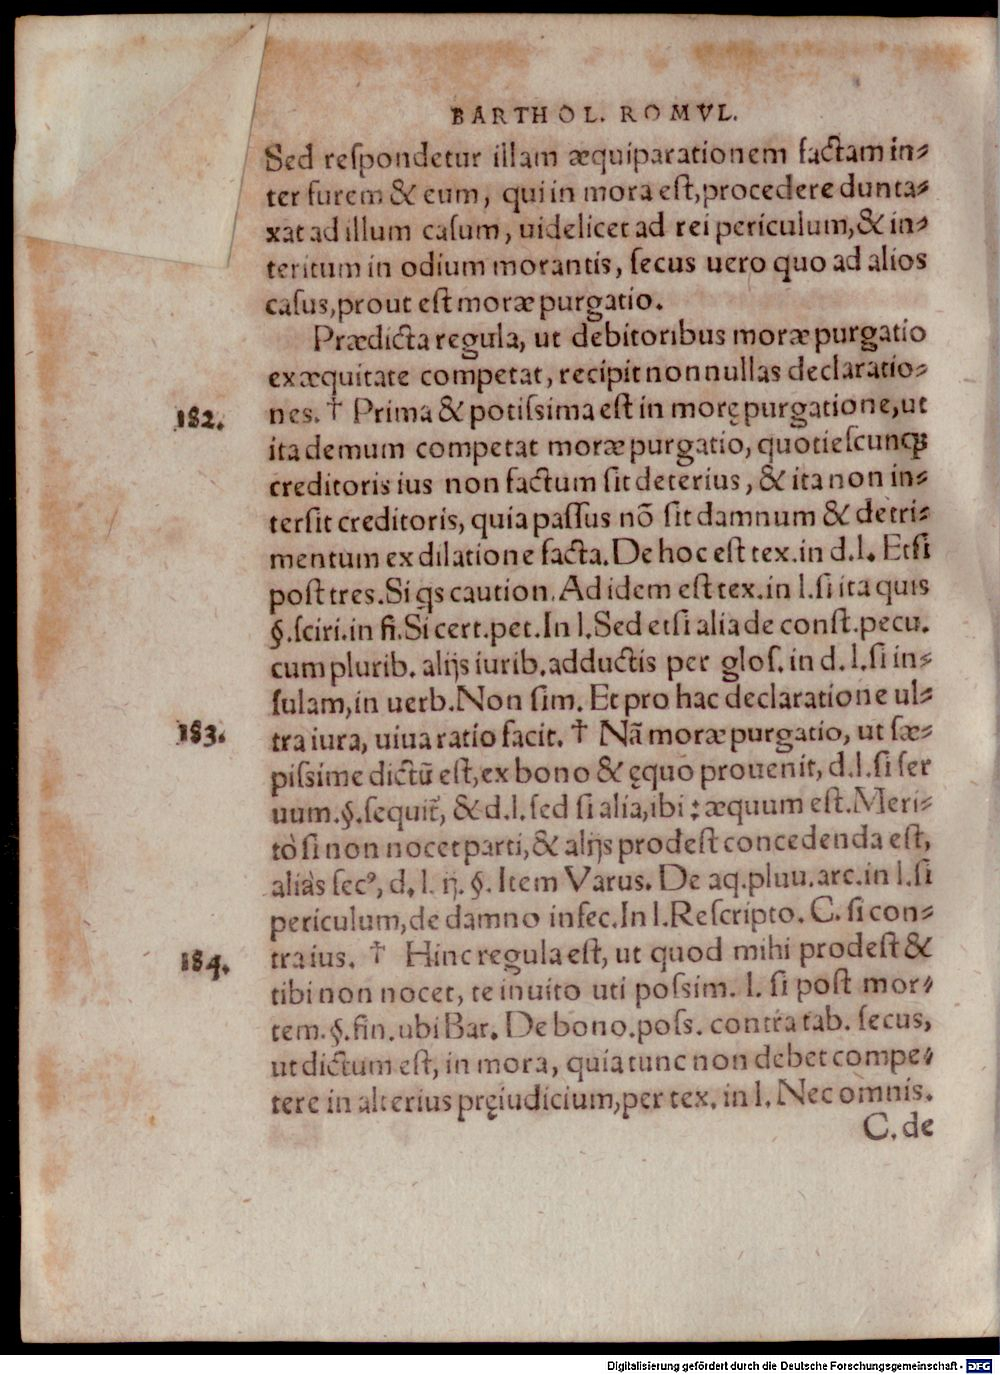 BARTHOL. ROMVL.
Sed reſpondetur illam æquiparationem factam in⸗
ter furem & eum, qui in mora eſt, procedere dunta⸗
xat ad illum caſum, uidelicet ad rei periculum, & in⸗
teritum in odium morantis, ſecus uero quo ad alios
caſus, prout eſt moræ purgatio.
Prædicta regula, ut debitoribus moræ purgatio
ex æquitate competat, recipit nonnullas declaratio⸗
182. nes. † Prima & potiſsima eſt in morę purgatione, ut
ita demum competat moræ purgatio, quotieſcunqꝫ
creditoris ius non factum ſit deterius, & ita non in⸗
terſit creditoris, quia paſſus nõ ſit damnum & detri⸗
mentum ex dilatione facta. De hoc eſt tex. in d. l. Etſi
poſt tres. Si qs caution. Ad idem eſt tex. in l. ſi ita quis
§. ſciri. in fi. Si cert. pet. In l. Sed etſi alia de conſt. pecu.
cum plurib. alijs iurib. adductis per gloſ. in d. l. ſi in⸗
ſulam, in uerb. Non ſim. Et pro hac declaratione ul⸗
183. tra iura, uiua ratio facit. † Nã moræ purgatio, ut ſæ⸗
piſsime dictũ eſt, ex bono & ęquo prouenit, d. l. ſi ſer
uum. §. ſequit̃, & d. l. ſed ſi alia, ibi : æquum eſt. Meri⸗
tò ſi non nocet parti, & alijs prodeſt concedenda eſt,
aliàs ſecꝰ, d. l. ij. §. Item Varus. De aq. pluu. arc. in l. ſi
periculum, de damno infec. In l. Reſcripto. C. ſi con⸗
184. tra ius. † Hinc regula eſt, ut quod mihi prodeſt &
tibi non nocet, te inuito uti poſsim. l. ſi poſt mor⸗
tem. §. fin. ubi Bar. De bono. poſs. contra tab. ſecus,
ut dictum eſt, in mora, quia tunc non debet compe⸗
tere in alterius pręiudicium, per tex. in l. Nec omnis.
C. de
Digitalisierung gefördert durch die Deutsche Forschungsgemeinschaft - DFG